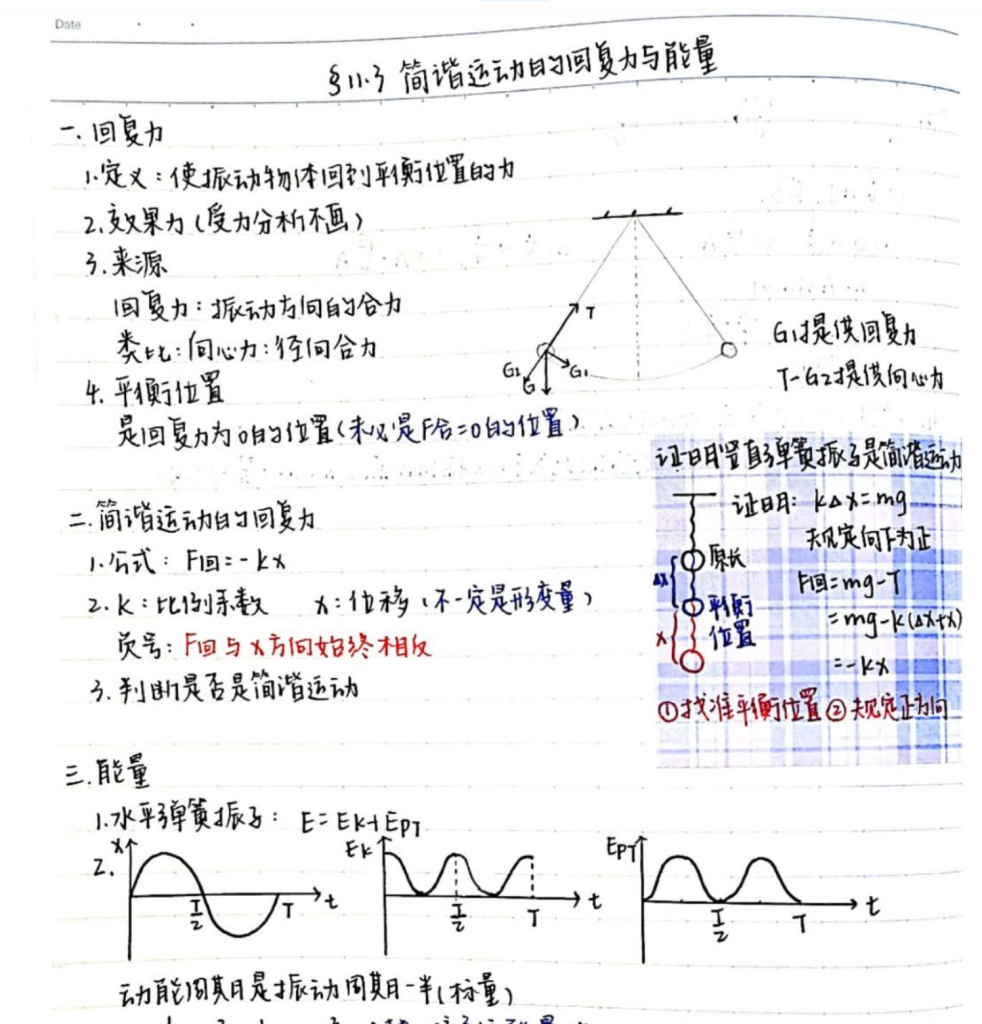 Date
§11.3 简谐运动的回复力与能量
一.回复力
1.定义:使振动物体回到平衡位置的力
2.效果力(受力分析不画)
3.来源
回复力:振动方向的合力
类比:向心力:径向合力
4.平衡位置
是回复力为0的位置(未必是F合=0的位置)
T
G2
G1
G
G1提供回复力
T-G2提供向心力
二.简谐运动的回复力
1.公式:F回=-kx
2.k:比例系数 x:位移(不一定是形变量)
负号:F回与x方向始终相反
3.判断是否是简谐运动
证明竖直弹簧振子是简谐运动
证明:kΔx=mg
规定向下为正
F回=mg-T
=mg-k(Δx+x)
=-kx
原长
Δx
平衡
位置
x
①找准平衡位置②规定正方向
三.能量
1.水平弹簧振子:E=Ek+EpT
2.
x
T/2
T
t
Ek
T/2
T
t
EpT
T/2
T
t
动能周期是振动周期一半(标量)